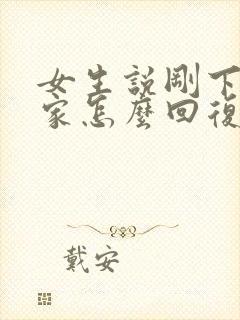 女生説剛下
家怎麼回復
戴安